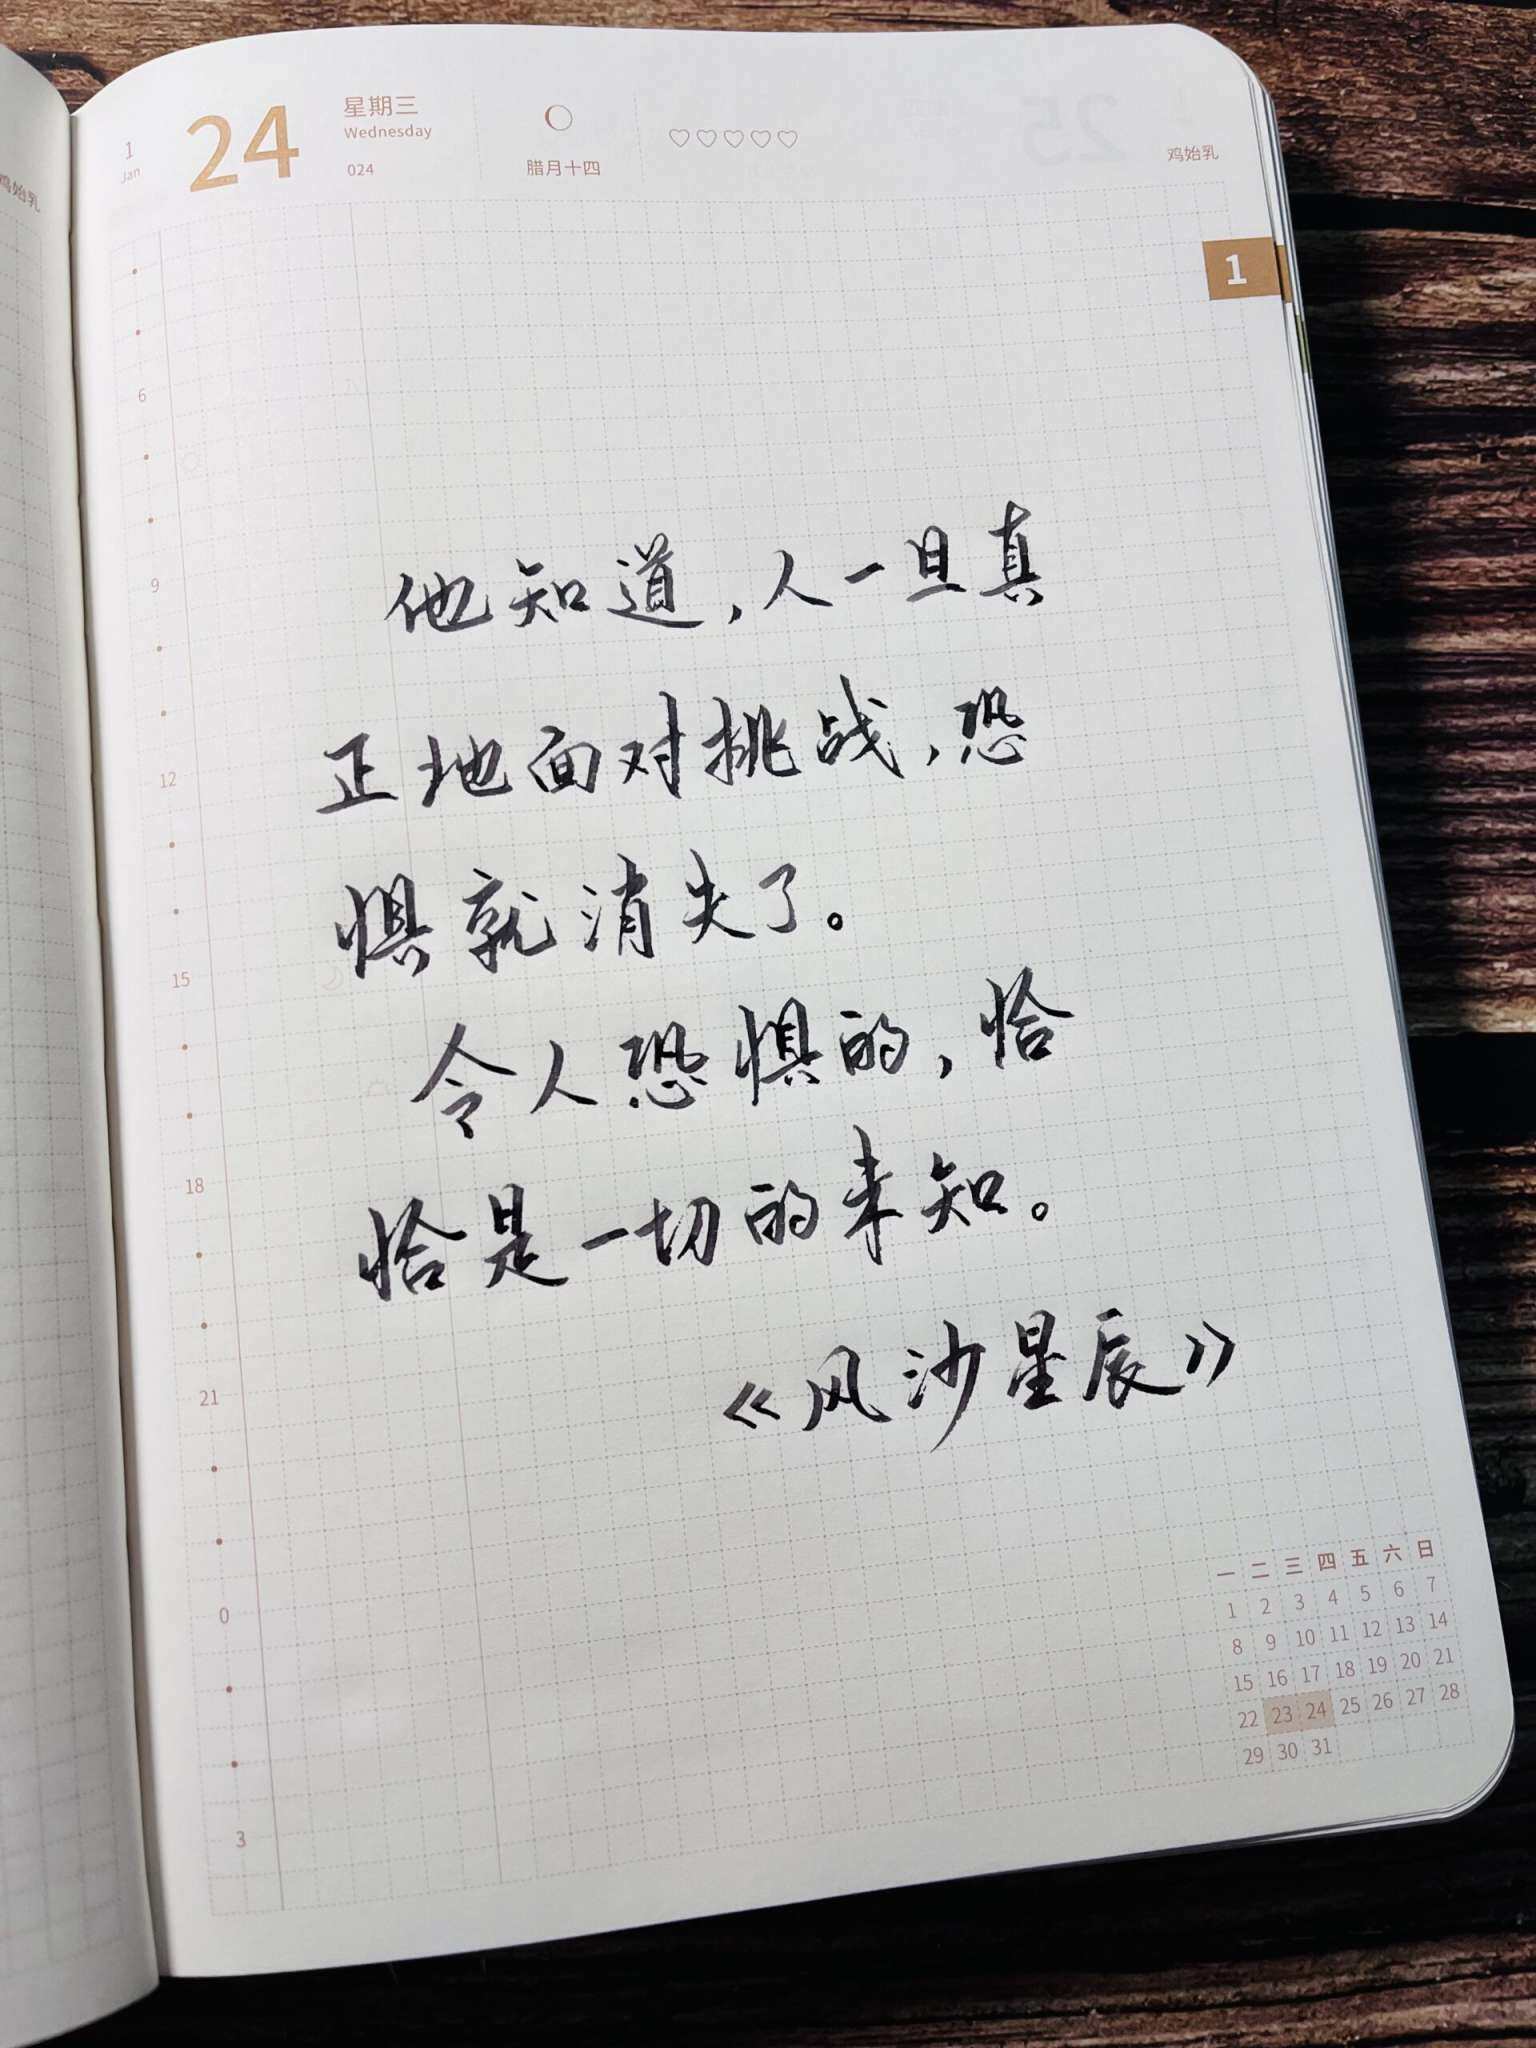 1
Jan
24
星期三
Wednesday
024
腊月十四
鸡始乳
鸡始乳
1
6
9
12
15
18
21
0
3
他知道，人一旦真
正地面对挑战，恐
惧就消失了。
令人恐惧的，恰
恰是一切的未知。
《风沙星辰》
一 二 三 四 五 六 日
1 2 3 4 5 6 7
8 9 10 11 12 13 14
15 16 17 18 19 20 21
22 23 24 25 26 27 28
29 30 31